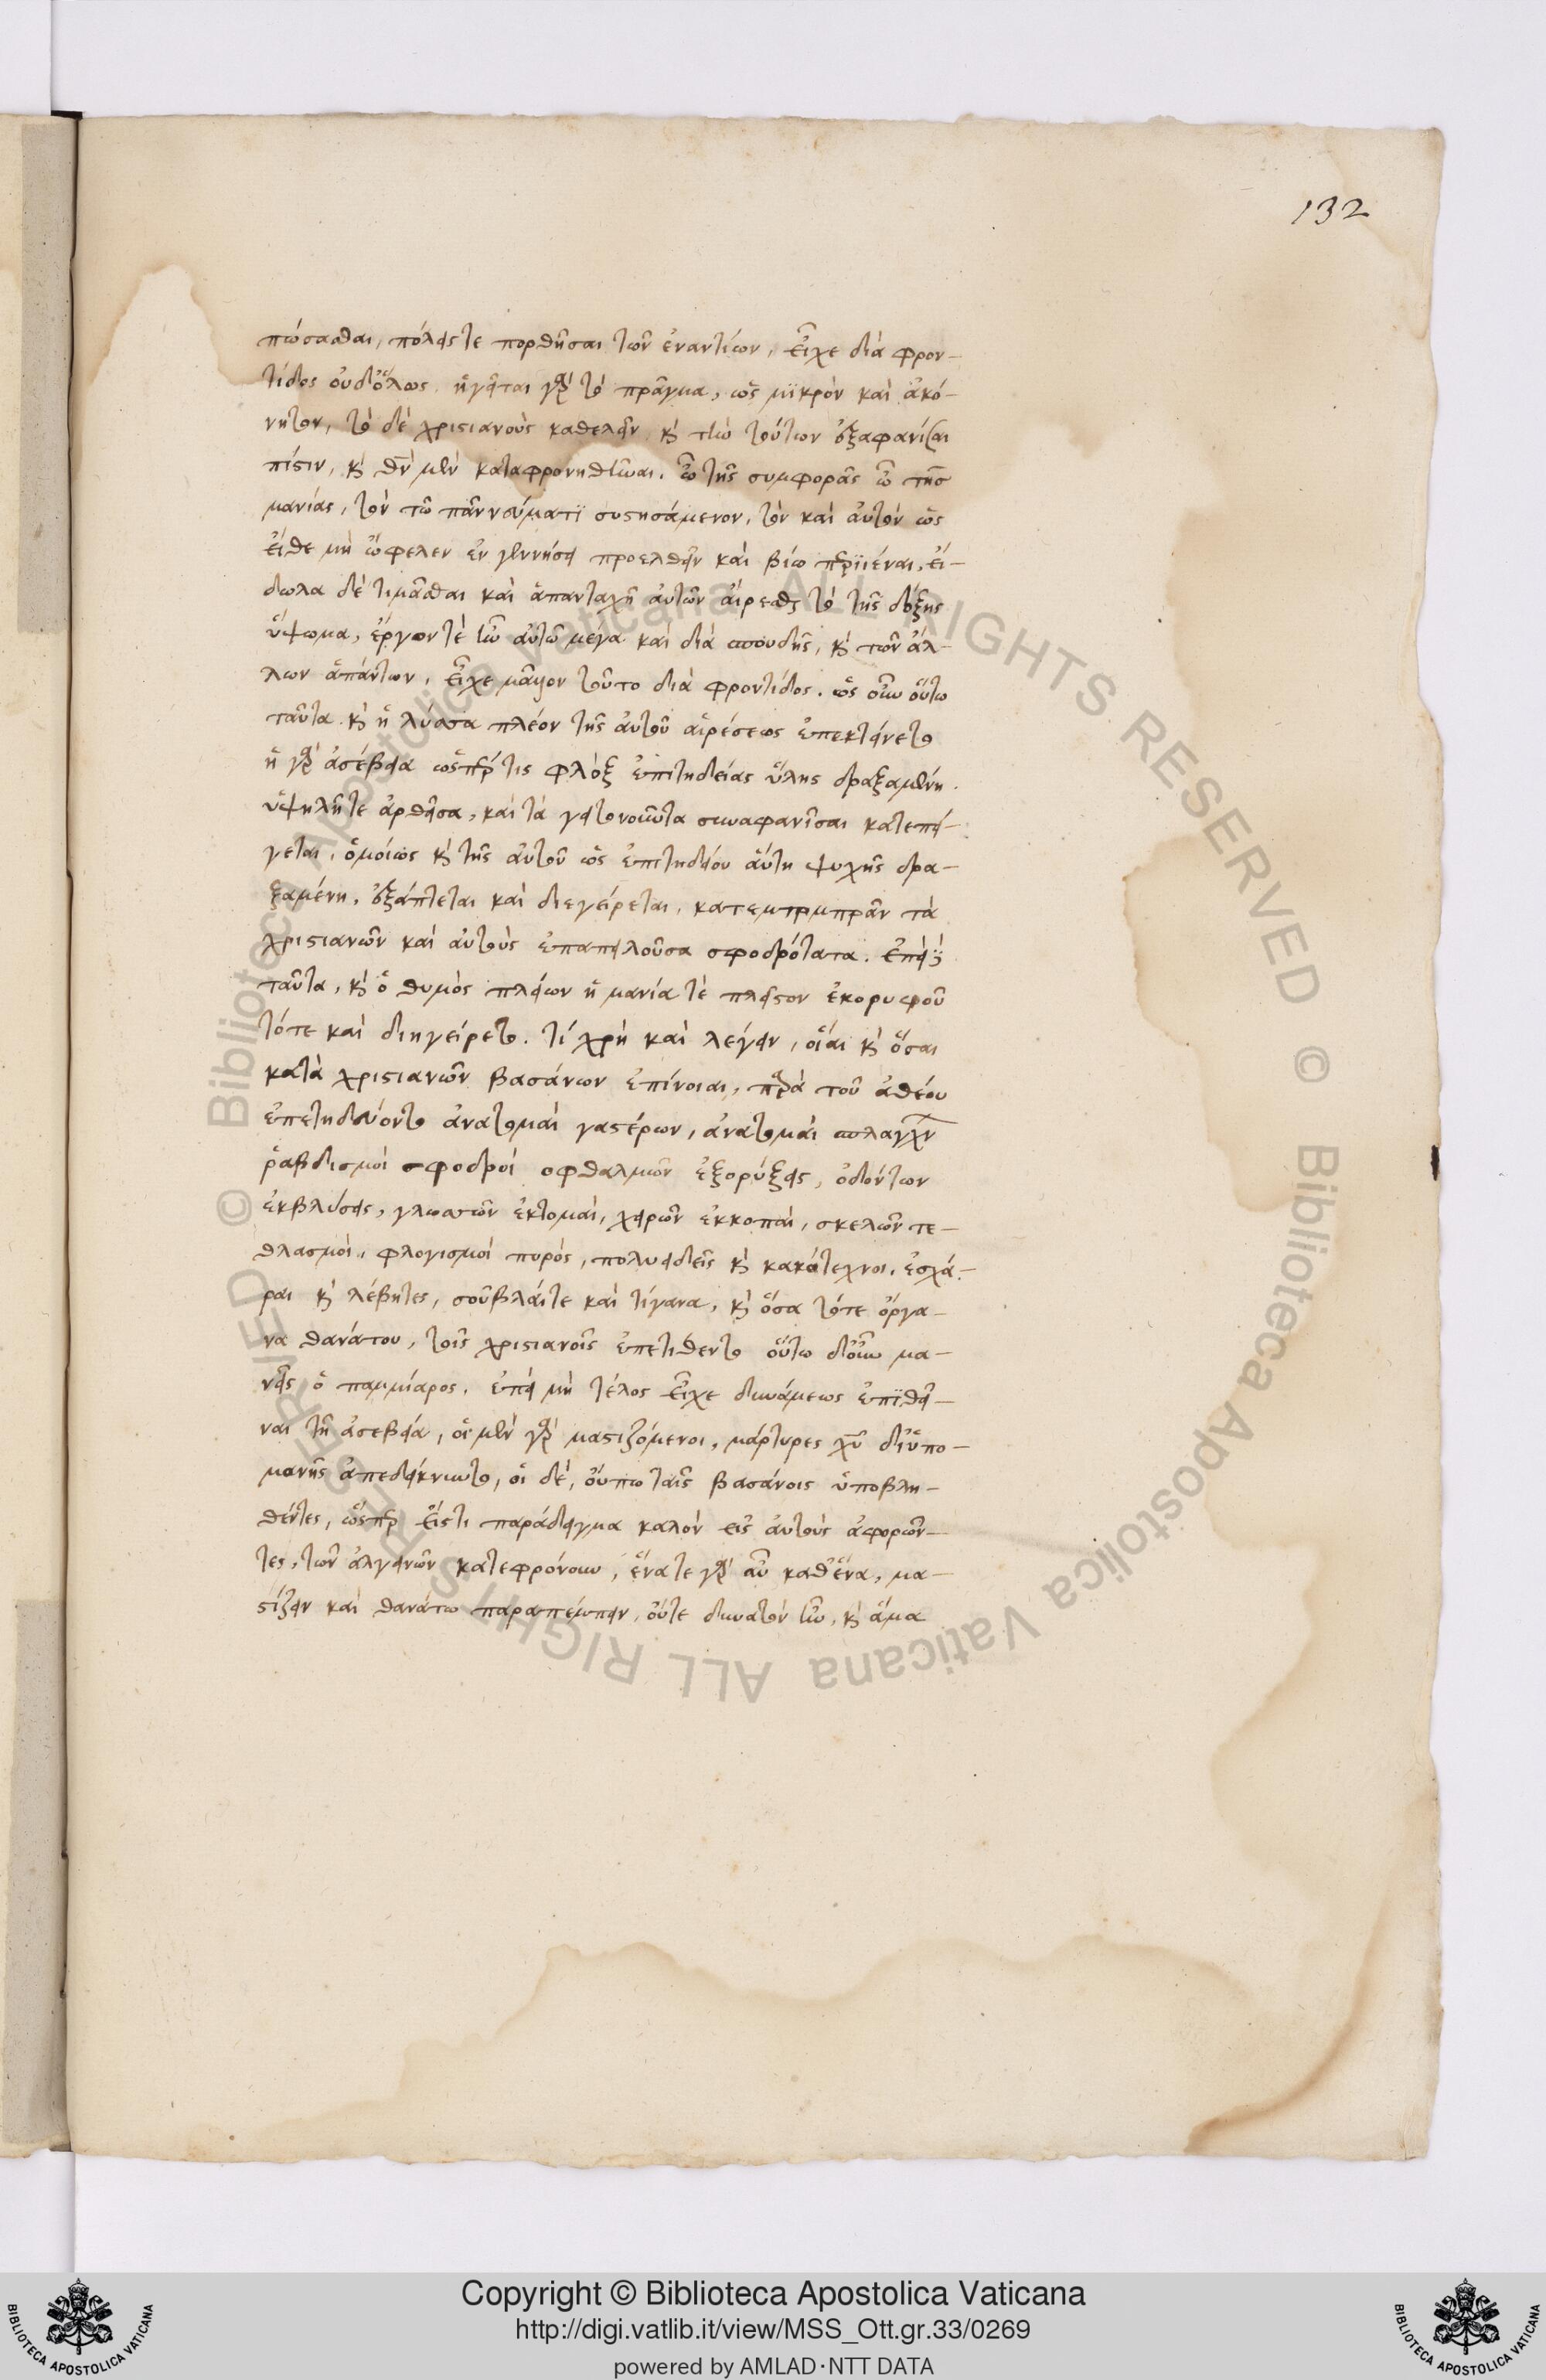 132
πώσασθαι, πόλεις τε πορθῆσαι τῶν ἐναντίων, εἶχε διὰ φρον-
τίδος οὐδόλως. ἡγεῖται γὰρ τὸ πρᾶγμα, ὡς μϊκρὸν καὶ ἀκό-
νητον, τὸ δὲ χριστιανοὺς καθελεῖν κỳ τὴν τούτων ἐξαφανίσαι
πίστιν, κỳ θν̄ μὲν καταφρονηθῆναι. ὢ τῆς συμφορᾶς ὢ τῆς
μανίας, τὸν τῶ πᾶν νεύματϊ συστησάμενον, τὸν καὶ αὐτὸν ὡς
εἴθε μὴ ὤφελεν ἐν γεννήσει προελθεῖν καὶ βίω περιϊέναι, εἴ-
δωλα δὲ τιμᾶσθαι καὶ ἁπανταχῆ αὐτῶν αἴρεσθαι τὸ τῆς δόξης
ὕψωμα, ἔργον τὲ ἦν αὐτῶ μέγα καὶ διὰ σπουδῆς, κỳ τῶν ἄλ-
λων ἁπάντων, εἶχε μᾶλλον τοῦτο διὰ φροντίδος. ὡς οὖν οὕτω
ταῦτα κỳ ἡ λύσσα πλέον τῆς αὐτοῦ αἱρέσεως ἐπεκτείνετο
ἡ γὰρ ἀσέβεια ὥσπερ τις φλὸξ ἐπιτηδείας ὕλης δραξαμένη.
ὑψηλῆ τε ἀρθεῖσα, καὶ τὰ γειτονοῦντα συναφανίσαι κατεπεί-
γεται, ὁμοίως κỳ τῆς αὐτοῦ ὡς ἐπιτηδείου αὕτη ψυχῆς δρα-
ξαμένη, ἐξάπτεται καὶ διεγείρεται, κατεμπιμπρᾶν τὰ
χριστιανῶν καὶ αὐτοὺς ἐπαπειλοῦσα σφοδρότατα. ἐπεὶ
ταῦτα, κỳ ὁ θυμὸς πλείων ἡ μανία τὲ πλεῖστον ἐκορυφοῦ
τότε καὶ διηγείρετο. τί χρὴ καὶ λέγειν, οἷαι κỳ ὅσαι
κατὰ χριστιανῶν βασάνων ἐπίνοιαι, παρὰ τοῦ ἀθέου
ἐπετηδεύοντο ἀνατομαὶ γαστέρων, ἀνατομαὶ σπλαγχν
ῥαβδισμοὶ σφοδροὶ οφθαλμῶν ἐξορύξεις, ὀδόντων
ἐκβλύσεις, γλωσσῶν ἐκτομαὶ, χειρῶν ἐκκοπαὶ, σκελῶν τε-
θλασμοὶ, φλογισμοὶ πυρὸς, πολυειδεῖς κỳ κακότεχνοι, ἐσχά-
ραι κỳ λέβητες, σοῦβλαί τε καὶ τίγανα, κỳ ὅσα τότε ὄργα-
να θανάτου, τοῖς χριστιανοῖς ἐπετιθεντο οὕτω δ' οὖν μα-
νεὶς ὁ παμμίαρος, ἐπεὶ μὴ τέλος εἶχε δυνάμεως ἐπϊθεῖ-
ναι τῆ ἀσεβεία, οἱ μὲν γὰρ μαστιζόμενοι, μάρτυρες χῦ δι' ὑπο-
μονῆς ἀπεδείκνυντο, οἱ δὲ, οὔπω ταῖς βασάνοις ὑποβλη-
θέντες, ὥσπερ εἴς τι παράδειγμα καλὸν εἰς αὐτοὺς ἀφορῶν-
τες, τῶν ἀλγεινῶν κατεφρόνουν, ἕνα τε γὰρ αὖ καθ' ἕνα, μα-
στίζειν καὶ θανάτω παραπέμπειν, οὔτε δυνατὸν ἦν, κỳ ἅμα
Copyright © Biblioteca Apostolica Vaticana
http://digi.vatlib.it/view/MSS_Ott.gr.33/0269
powered by AMLAD·NTT DATA
BIBLIOTECA APOSTOLICA VATICANA
BIBLIOTECA APOSTOLICA VATICANA
© Biblioteca Apostolica Vaticana ALL RIGHTS RESERVED © Biblioteca Apostolica Vaticana ALL RIGHTS RESERVED